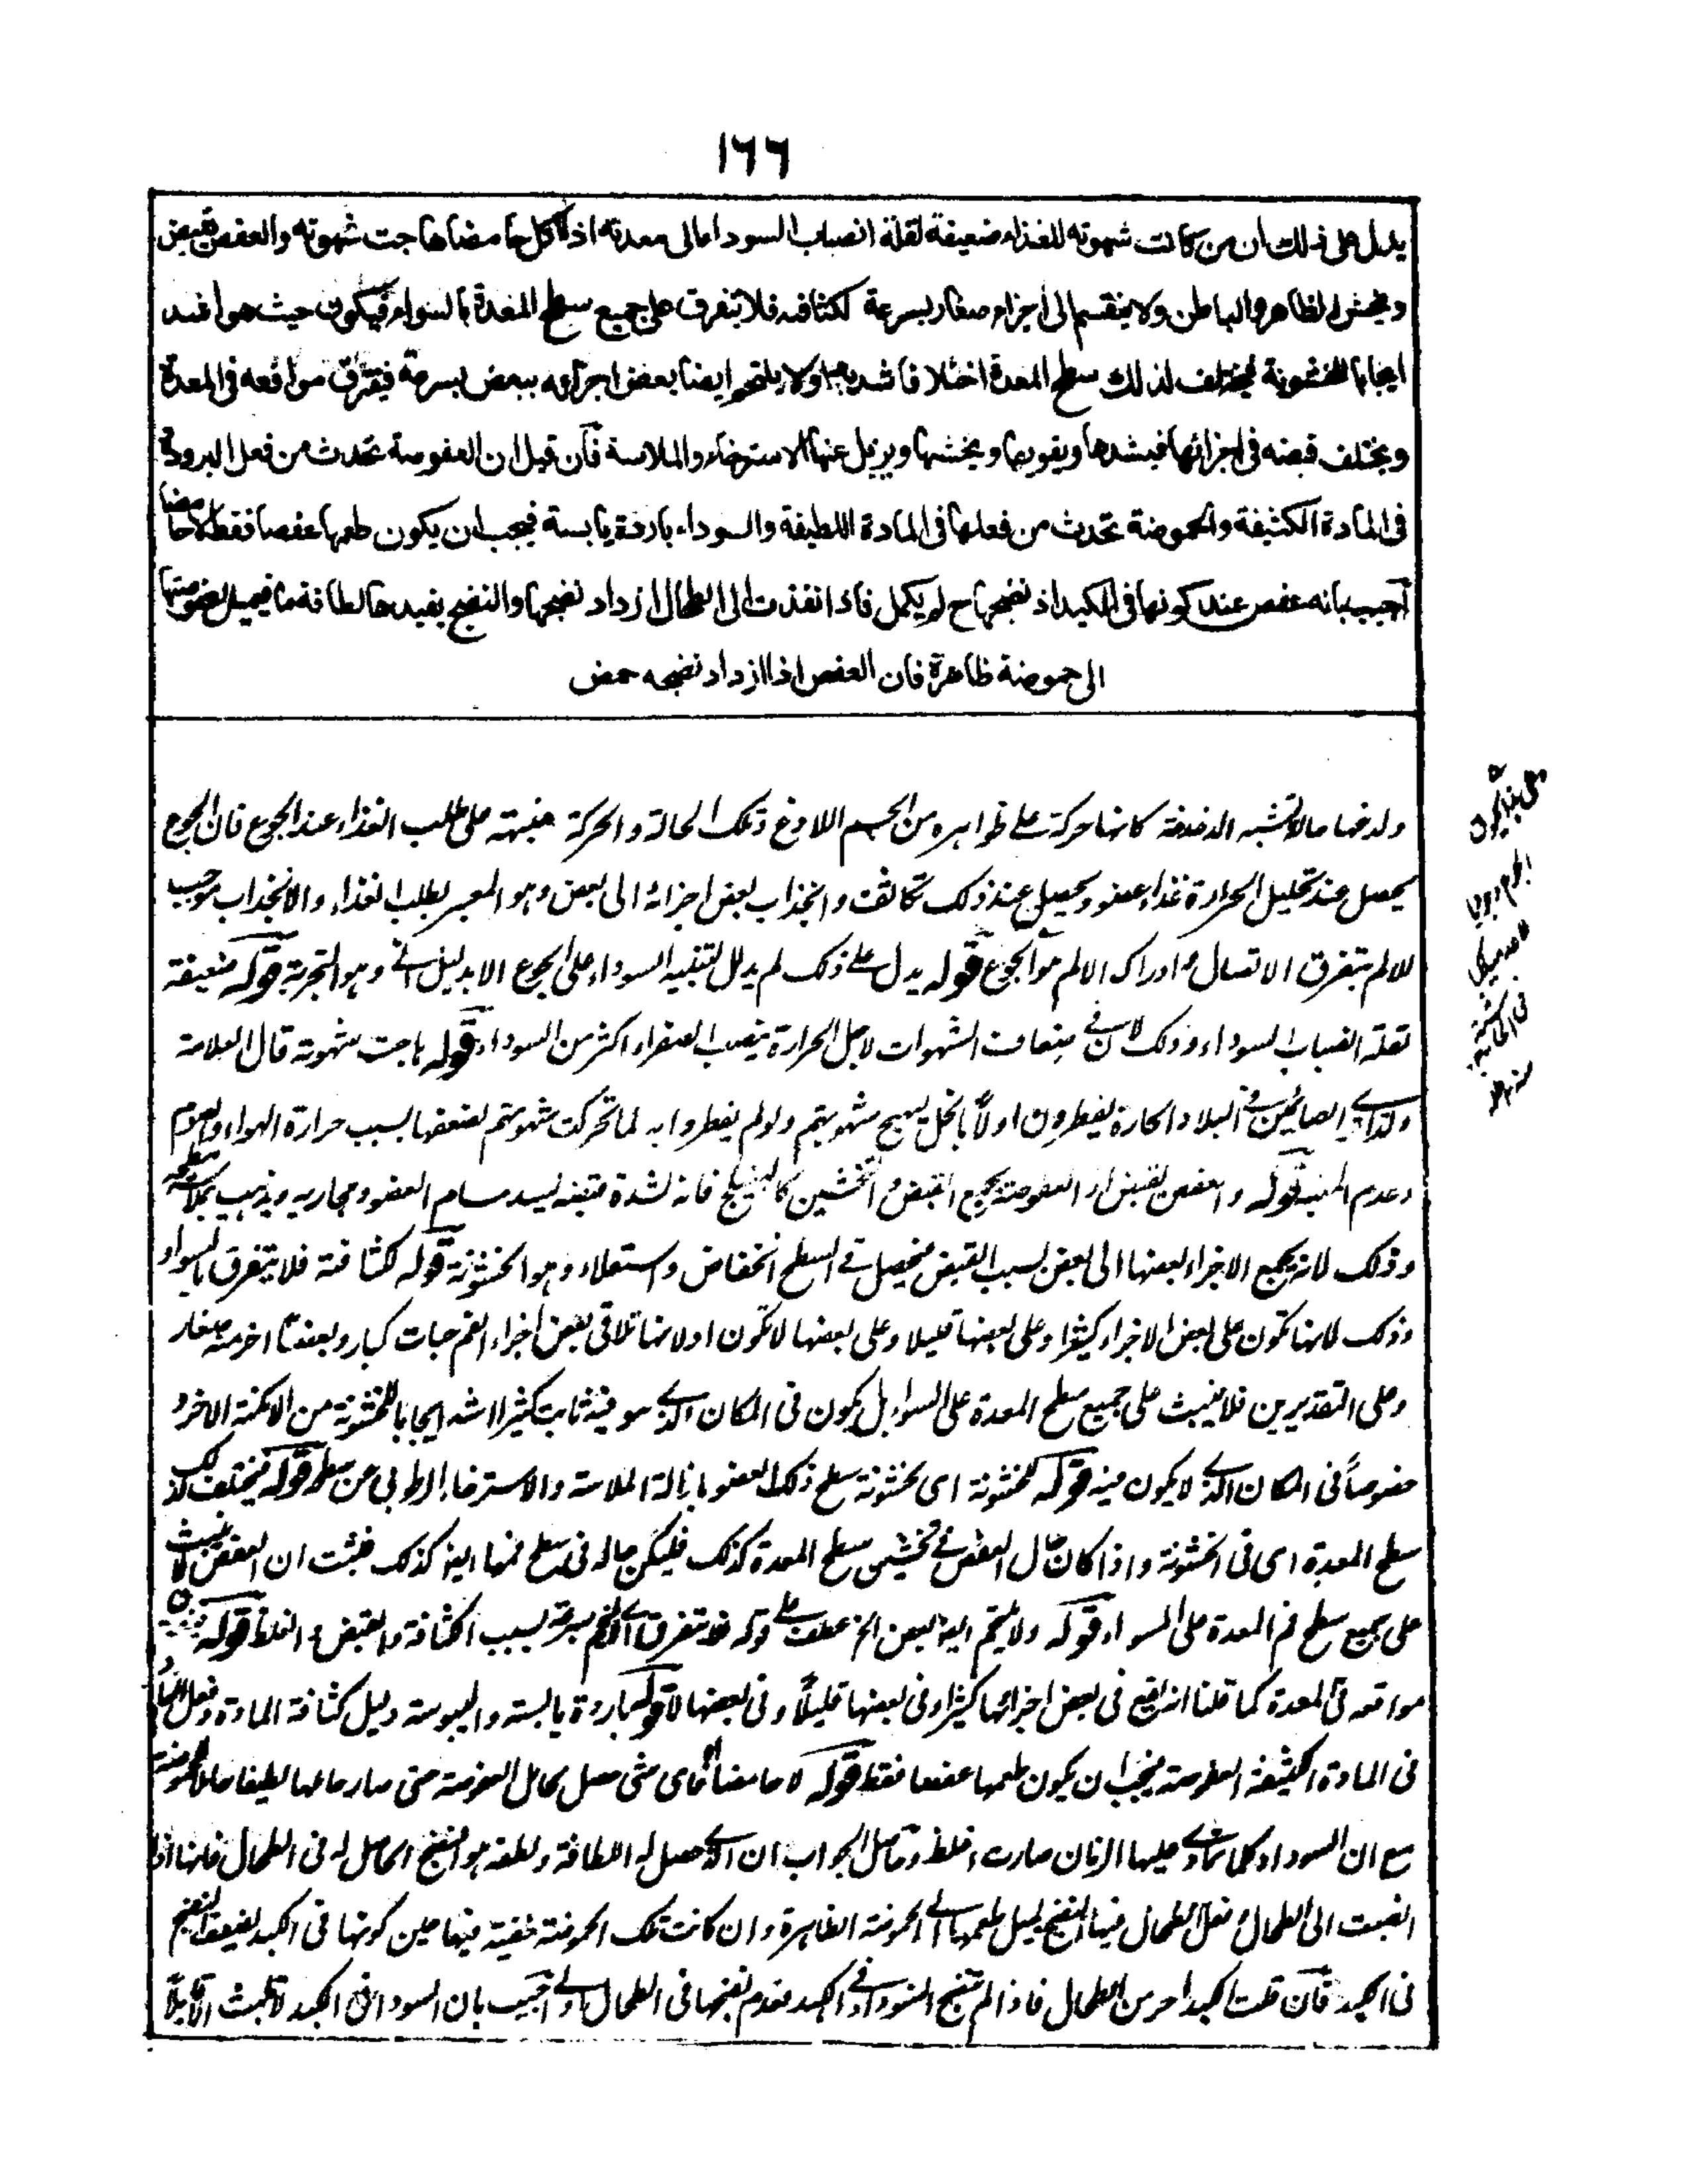 ١٦٦
يدل على ذلك ان من كانت شهوته للغذاء ضعيفة لقلة انصباب السوداء الى معدته اذا اكل حامضا هاجت شهوته والعفص يقبض
ويخشن الظاهر والباطن ولا ينقسم الى اجزاء صغار بسرعة لكثافته فلا يتفرق على جميع سطح المعدة بالسواء فيكون حيث هو اشد
ايجابا للخشونة فيختلف لذلك سطح المعدة اختلافا شديدا ولا يلتحم ايضا بعض اجزائه ببعض بسرعة فيتفرق مواقعه فى المعدة
ويختلف قبضه فى اجزائها فيشدها ويقويها ويخشنها ويزيل عنها الاسترخاء والملاسة فآن قيل ان العفوصة تحدث من فعل البرودة
فى المادة الكثيفة والحموضة تحدث من فعلها فى المادة اللطيفة والسوداء باردة يابسة فيجب ان يكون طعمها عفصا فقط لا حامضا
آجيب بانه عفص عند كونها فى الكبد اذ نضجها ح لم يكمل فاذا نفذت الى الطحال ازداد نضجها والنضج يفيدها لطافة ما فيميل عفوصتها
الى حموضة ظاهرة فان العفص اذا ازداد نضجه حمض
ولدغها مالا تشبه الدغدغة كانها حركة على ظواهره من الجسم اللاذع وتلك الحالة والحركة منبهة على طلب الغذاء عند الجوع فان الجوع
يحصل عند تحليل الحرارة غذاء عضو ويحصل عند ذلك تكاثف وانجذاب بعض اجزائه الى بعض وهو المعبر بطلب الغذاء والانجذاب موجب
للالم بتفرق الاتصال وادراك الالم هو الجوع قوله يدل على ذلك لم يدل لتنبيه السوداء على الجوع الا بدليل انى وهو التجربة قوله ضعيفة
لقلة انصباب السوداء وذلك لان فى ضعاف الشهوات لاجل الحرارة ينصب الصفراء اكثر من السوداء قوله هاجت شهوته قال العلامة
ولذا ترى الصائمين فى البلاد الحارة يفطرون اولاً بالخل ليهيج شهوتهم ولو لم يفطروا به لما تحركت شهوتهم لضعفها بسبب حرارة الهواء والصوم
وعدم المنبه قوله والعفص يقبض اذ العفوصة يجمع القبض والتخشين كالهليلج فانه لشدة قبضه ليسد مسام العضو ومجاريه ويذهب بملاسة سطحه
وذلك لانه يجمع الاجزاء بعضها الى بعض بسبب القبض فيحصل فى السطح انخفاض واستعلاء وهو الخشونة قوله لكثافته فلا يتفرق بالسواء
وذلك لانها تكون على بعض الاجزاء كثيرا وعلى بعضها قليلا وعلى بعضها لا تكون او لانها تلاقى بعض اجزاء الفم حبات كبار وبعضا اخر منه صغار
وعلى التقديرين فلا ينبث على جميع سطح المعدة على السواء بل يكون فى المكان الذى هو فيه ثابت كثيرا اشد ايجابا للخشونة من الامكنة الاخر و
خصوصاً فى المكان الذى لا يكون فيه قوله للخشونة اى لخشونة سطح ذلك العضو بازالة الملاسة والاسترخاء الرطوبى عن سطحه قوله فيختلف لذلك
سطح المعدة اى فى الخشونة واذا كان حال العفص فى تخشين سطح المعدة كذلك فليكن حاله فى سطح فمها ايضا كذلك فثبت ان العفص لا ينبث
على جميع سطح فم المعدة على السواء قوله ولا يلتحم ايضا بعض الخ عطف على قوله فلا يتفرق اى لا يلتحم بسرعة بسبب الكثافة والقبض والغلظ قوله
مواقعه فى المعدة كما قلنا انه يقع فى بعض اجزائها كثيرا وفى بعضها قليلاً وفى بعضها لا قوله باردة يابسة واليبوسة دليل كثافة المادة وفعل
فى المادة الكثيفة العفوصة فيجب ان يكون طعمها عفصا فقط قوله لا حامضا اى متى حصل لحامل العفوصة حتى صار حاملها لطيفا حاملا للحموضة
مع ان السوداء كلما تمادى عليها الزمان صارت اغلظ وحاصل الجواب ان الذى حصل له اللطافة ولطفه هو النضج الحاصل له فى الطحال فانها اذا
انصبت الى الطحال وفعل الطحال فيها النضج ليميل طعمها الى الحموضة الظاهرة وان كانت تلك الحموضة خفية فيها حين كونها فى الكبد لضيق النضج
فى الكبد فآن قلت الكبد احر من الطحال فاذا لم تنضج السوداء فى الكبد فعدم نضجها فى الطحال اولى اجيب بان السوداء فى الكبد لا تلبث الا قليلاً